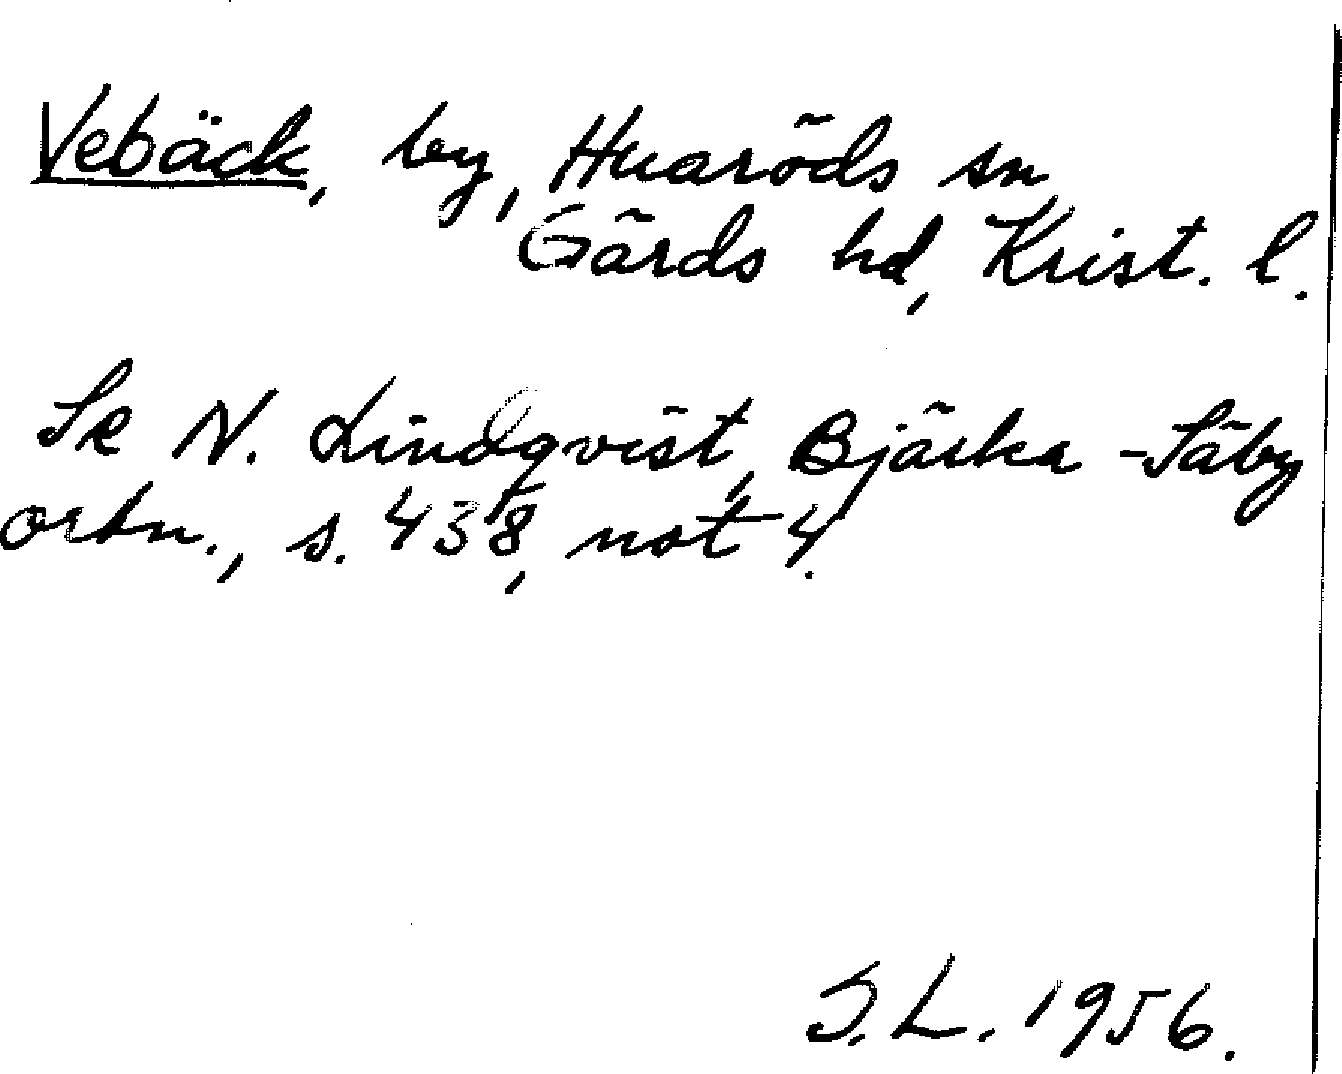 Vebäck, by, Huaröds sn
Gärds hd, Krist. l.
Se N. Lindqvist, Bjärka-Säby
ortn., s. 438, not 4.
S.L. 1956.